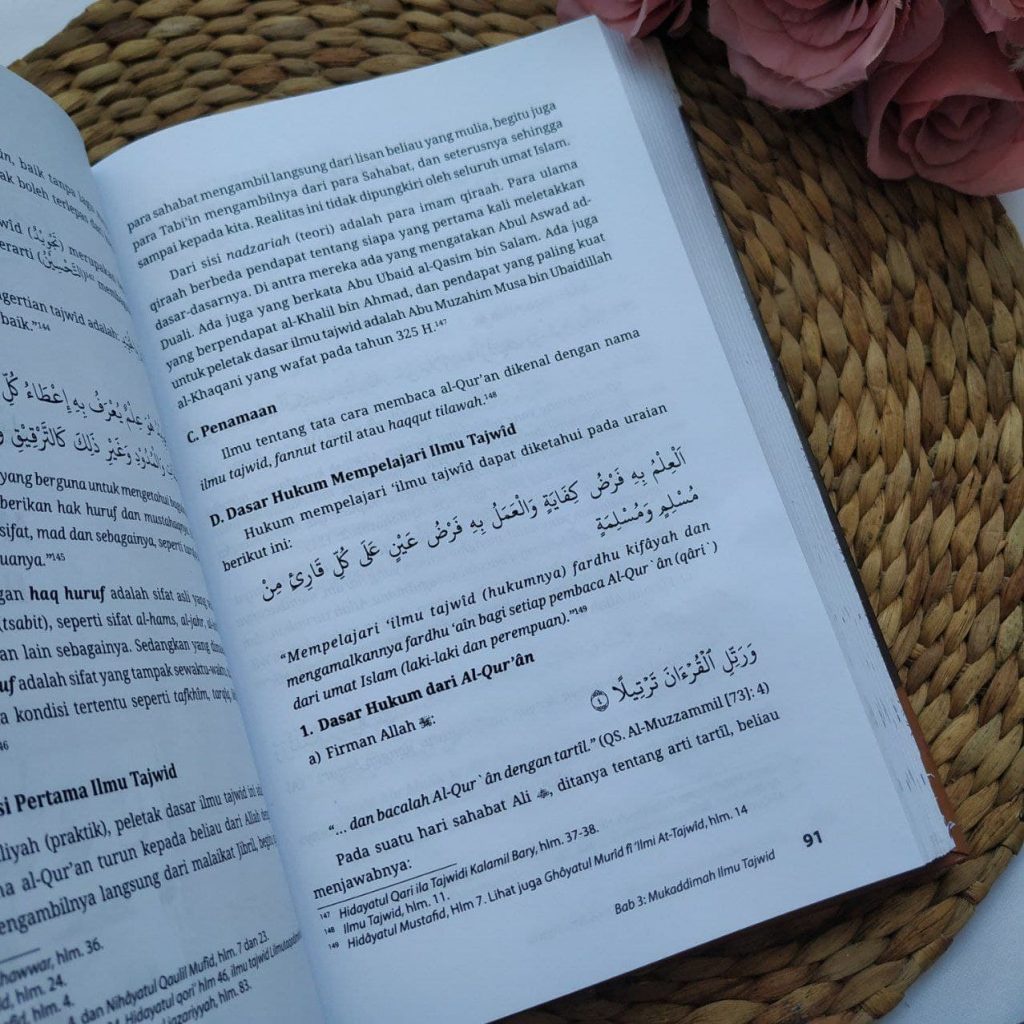 in, baik tanpa lagu
ak boleh terlepas dari
wîd (تَجْوِيْدٌ) merupakan
erarti (التَّحْسِيْنُ)
ngertian tajwîd adalah:
baik."144
هُوَ عِلْمٌ يُعْرَفُ بِهِ إِعْطَاءُ كُلِّ
وَالْمُدُوْدِ وَغَيْرِ ذَلِكَ كَالتَّرْقِيْقِ
yang berguna untuk mengetahui
berikan hak huruf dan mustahaqnya
sifat, mad dan sebagainya, seperti
uanya."145
gan haq huruf adalah sifat asli yang
(tsabit), seperti sifat al-hams, al-jahr,
an lain sebagainya. Sedangkan yang
uf adalah sifat yang tampak sewaktu-waktu
a kondisi tertentu seperti tafkhim, tarqiq,
46
si Pertama Ilmu Tajwid
liyah (praktik), peletak dasar ilmu tajwid ini
na al-Qur'an turun kepada beliau dari Allah
engambilnya langsung dari malaikat Jibril, begitu
hawwar, hlm. 36.
id, hlm. 24.
afid, hlm. 4.
4. dan Nihâyatul Qaulil Mufîd, hlm. 7 dan 23.
Hidayatul qori' hlm 46, ilmu tajwid
Jazariyyah, hlm. 83.
para sahabat mengambil langsung dari lisan beliau yang mulia, begitu juga
para Tabi'in mengambilnya dari para Sahabat, dan seterusnya sehingga
sampai kepada kita. Realitas ini tidak dipungkiri oleh seluruh umat Islam.
Dari sisi nadzariah (teori) adalah para imam qiraah. Para ulama
qiraah berbeda pendapat tentang siapa yang pertama kali meletakkan
dasar-dasarnya. Di antra mereka ada yang mengatakan Abul Aswad ad-
Duali. Ada juga yang berkata Abu Ubaid al-Qasim bin Salam. Ada juga
yang berpendapat al-Khalil bin Ahmad, dan pendapat yang paling kuat
untuk peletak dasar ilmu tajwid adalah Abu Muzahim Musa bin Ubaidillah
al-Khaqani yang wafat pada tahun 325 H.147
C. Penamaan
Ilmu tentang tata cara membaca al-Qur'an dikenal dengan nama
ilmu tajwid, fannut tartil atau haqqut tilawah.148
D. Dasar Hukum Mempelajari Ilmu Tajwîd
Hukum mempelajari 'ilmu tajwîd dapat diketahui pada uraian
berikut ini:
اَلْعِلْمُ بِهِ فَرْضُ كِفَايَةٍ وَالْعَمَلُ بِهِ فَرْضُ عَيْنٍ عَلَى كُلِّ قَارِئٍ مِنْ
مُسْلِمٍ وَمُسْلِمَةٍ
"Mempelajari 'ilmu tajwîd (hukumnya) fardhu kifâyah dan
mengamalkannya fardhu 'aîn bagi setiap pembaca Al-Qur`ân (qâri`)
dari umat Islam (laki-laki dan perempuan)."149
1. Dasar Hukum dari Al-Qur'ân
a) Firman Allah ﷻ:
وَرَتِّلِ ٱلْقُرْءَانَ تَرْتِيلًا ٤
"... dan bacalah Al-Qur`ân dengan tartîl." (QS. Al-Muzzammil [73]: 4)
Pada suatu hari sahabat Ali , ditanya tentang arti tartîl, beliau
menjawabnya:
147 Hidayatul Qari ila Tajwidi Kalamil Bary, hlm. 37-38.
148 Ilmu Tajwid, hlm. 11.
149 Hidâyatul Mustafid, Hlm 7. Lihat juga Ghôyatul Murîd fî 'Ilmi At-Tajwîd, hlm. 14
Bab 3: Mukaddimah Ilmu Tajwid
91